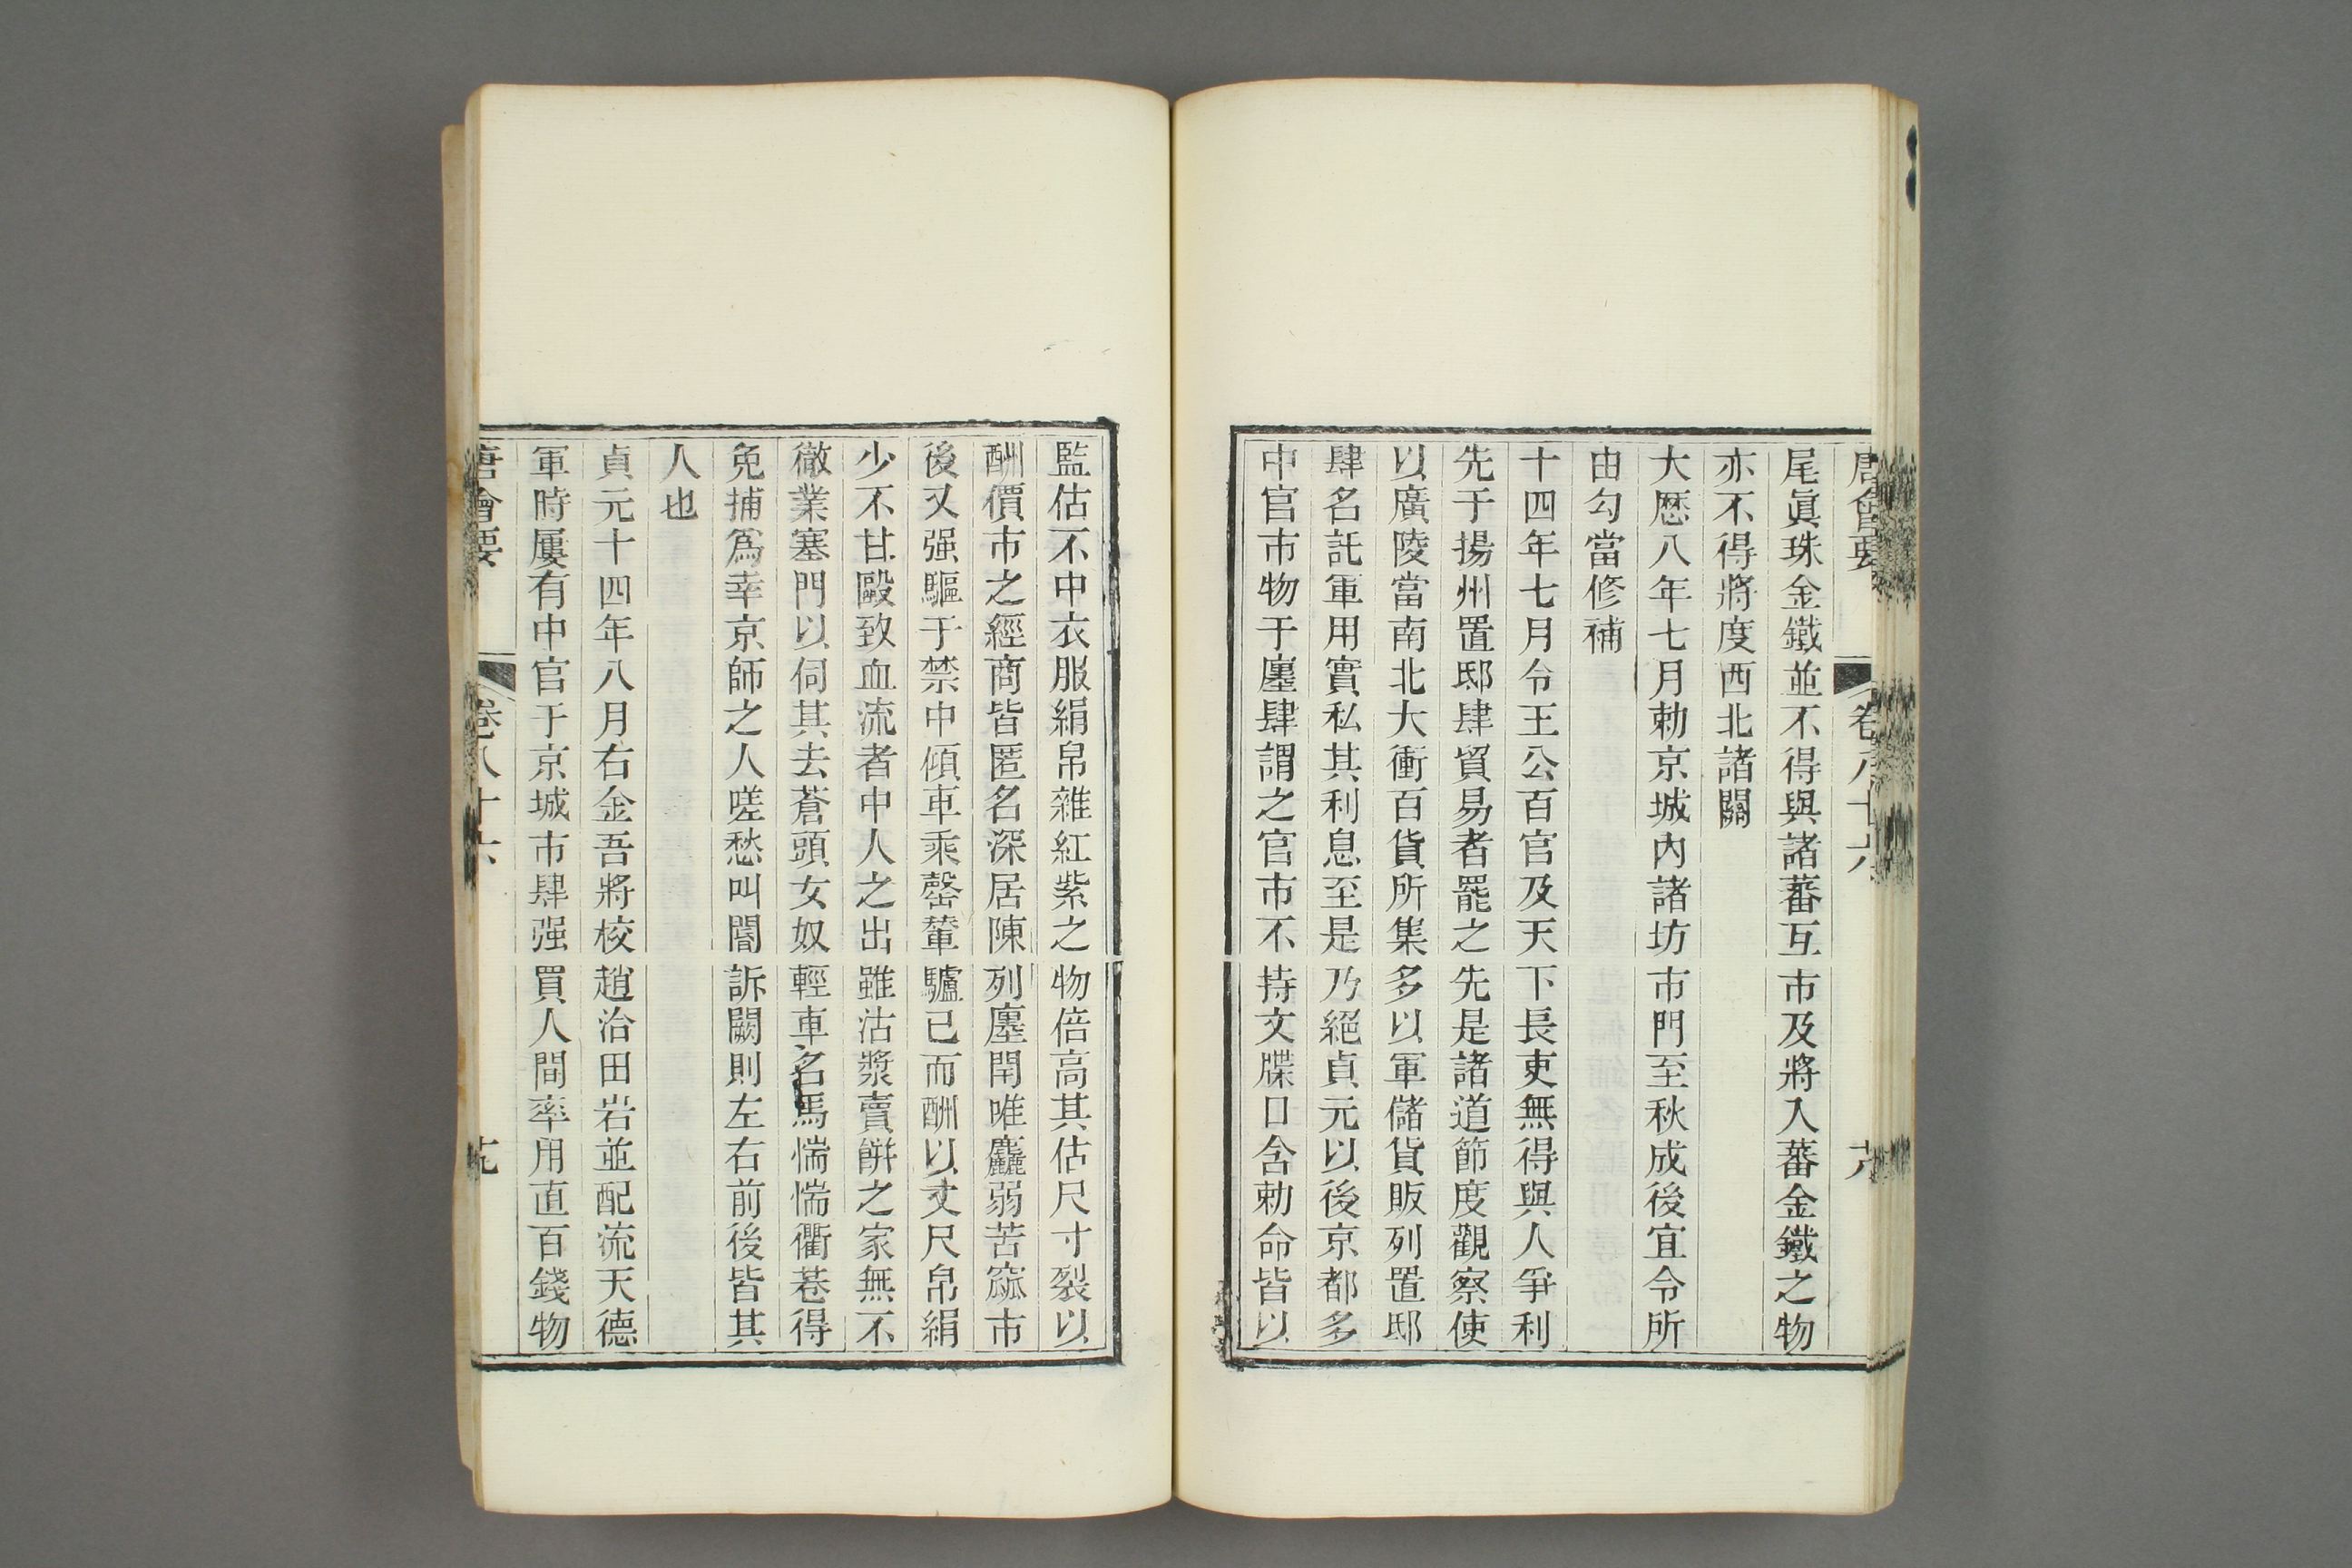 唐會要 卷八十六
尾眞珠金鐵並不得與諸蕃互市及將入蕃金鐵之物
亦不得將度西北諸關
大厯八年七月勅京城內諸坊市門至秋成後宜令所
由勾當修補
十四年七月令王公百官及天下長吏無得與人爭利
先于揚州置邸肆貿易者罷之先是諸道節度觀察使
以廣陵當南北大衝百貨所集多以軍儲貨販列置邸
肆名託軍用實私其利息至是乃絕貞元以後京都多
中官市物于廛肆謂之官市不持文牒口含勅命皆以
監估不中衣服絹帛雜紅紫之物倍高其估尺寸裂以
酬價市之經商皆匿名深居陳列廛閈唯麤弱苦窳市
後又强驅于禁中傾車乘罄輦驢已而酬以丈尺帛絹
少不甘毆致血流者中人之出雖沽漿賣餅之家無不
徹業塞門以伺其去蒼頭女奴輕車名馬惴惴衢巷得
免捕爲幸京師之人嗟愁叫閽訴闕則左右前後皆其
人也
貞元十四年八月右金吾將校趙洽田岩並配流天德
軍時屢有中官于京城市肆强買人間率用直百錢物
唐會要 卷八十六